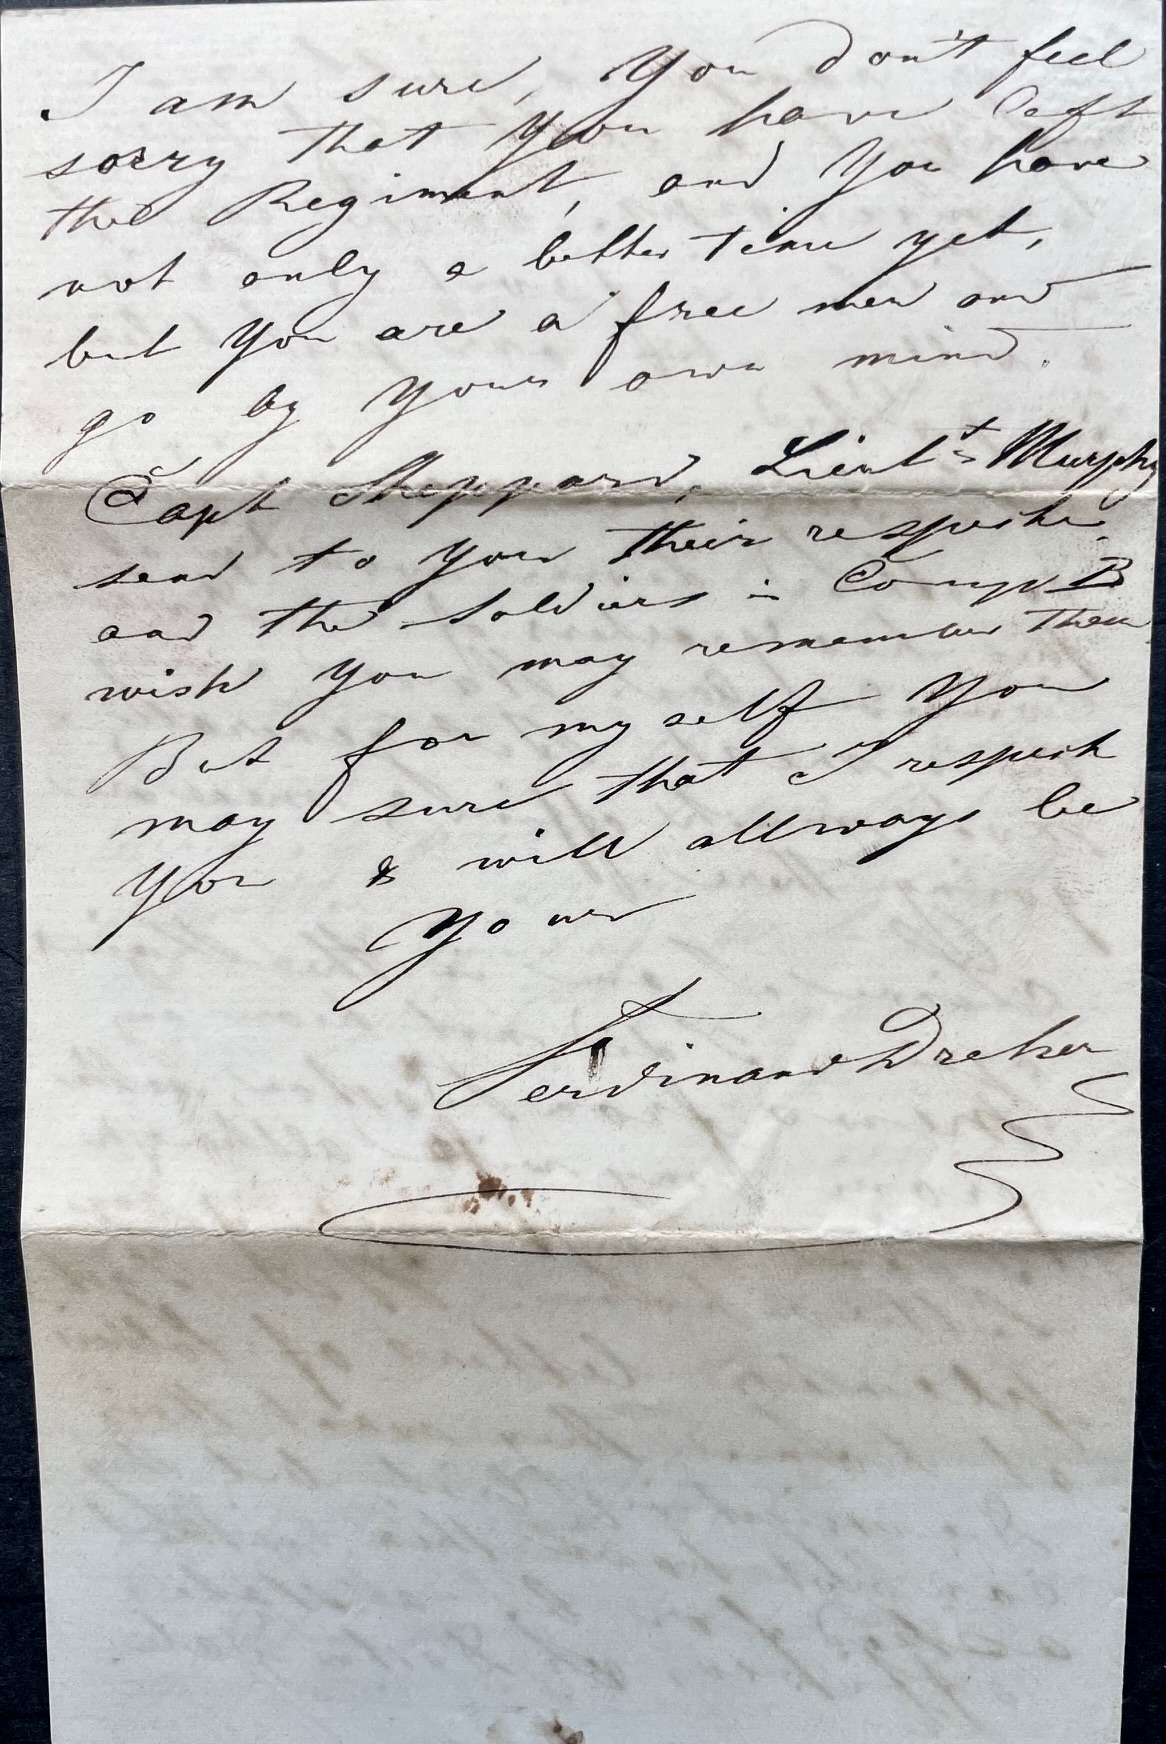 I am sure, You don't feel
sorry that You have left
the Regiment, and You have
not only a better time yet,
but You are a free man and
go by Yours own mind.
Capt Sheppard, Lieut's Murphy
send to You their respects
and the soldiers in Comp B
wish You may remember them
But for my self You
may sure that I respect
You & will allways be
Yours
Ferdinand Dreher